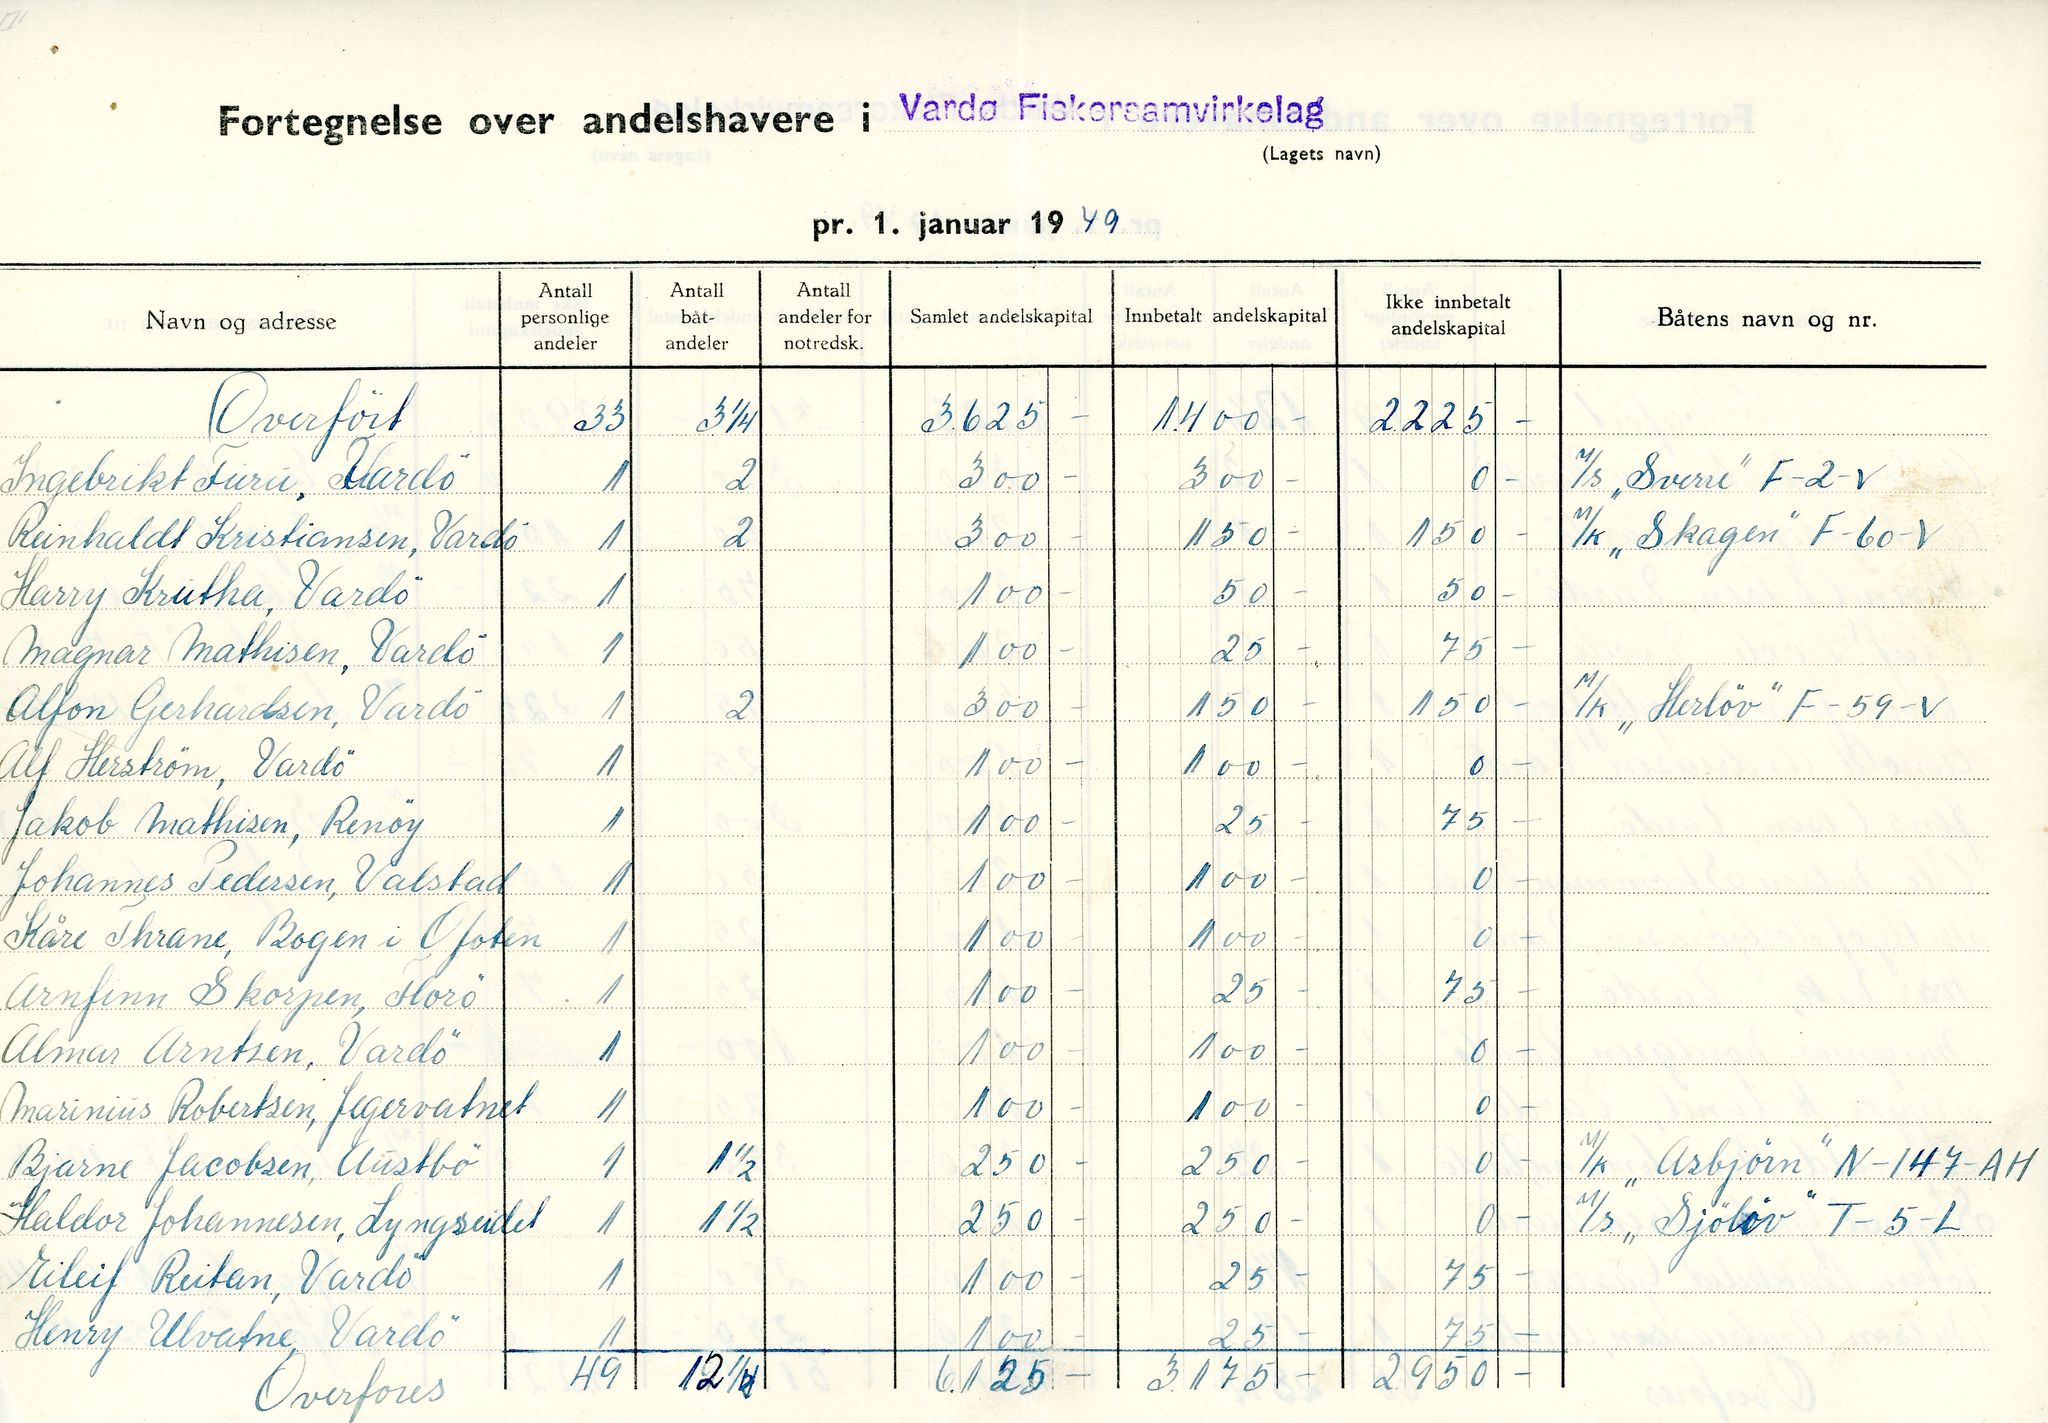 Fortegnelse over andelshavere i Vardø Fiskersamvirkelag
(Lagets navn)
pr. 1. januar 1949
Navn og adresse | Antall personlige andeler | Antall båt-andeler | Antall andeler for notredsk. | Samlet andelskapital | Innbetalt andelskapital | Ikke innbetalt andelskapital | Båtens navn og nr.
Overfört 33 3 1/4 3.625 - 1.400 - 2.225 -
Ingebrikt Furu, Vardö 1 2 300 - 300 - 0 - M/s „Sverre" F-2-V
Reinhaldt Kristiansen, Vardö 1 2 300 - 150 - 150 - M/k „Skagen" F-60-V
Harry Krutha, Vardö 1 100 - 50 - 50 -
Magnar Mathisen, Vardö 1 100 - 25 - 75 -
Alfon Gerhardsen, Vardö 1 2 300 - 150 - 150 - M/k „Herlöv" F-59-V
Alf Herström, Vardö 1 100 - 100 - 0 -
Jakob Mathisen, Renöy 1 100 - 25 - 75 -
Johannes Pedersen, Valstad 1 100 - 100 - 0 -
Kåre Thrane, Bogen i Ofoten 1 100 - 100 - 0 -
Arnfinn Skorpen, Florö 1 100 - 25 - 75 -
Almar Arntsen, Vardö 1 100 - 100 - 0 -
Marinius Robertsen, Jegervatnet 1 100 - 100 - 0 -
Bjarne Jacobsen, Austbö 1 1 1/2 250 - 250 - 0 - M/k „Asbjörn" N-147-AH
Haldor Johannesen, Lyngseidet 1 1 1/2 250 - 250 - 0 - M/s „Sjölöv" T-5-L
Eileif Reitan, Vardö 1 100 - 25 - 75 -
Henry Ulvatne, Vardö 1 100 - 25 - 75 -
Overfores 49 12 1/4 6.125 - 3.175 - 2950 -